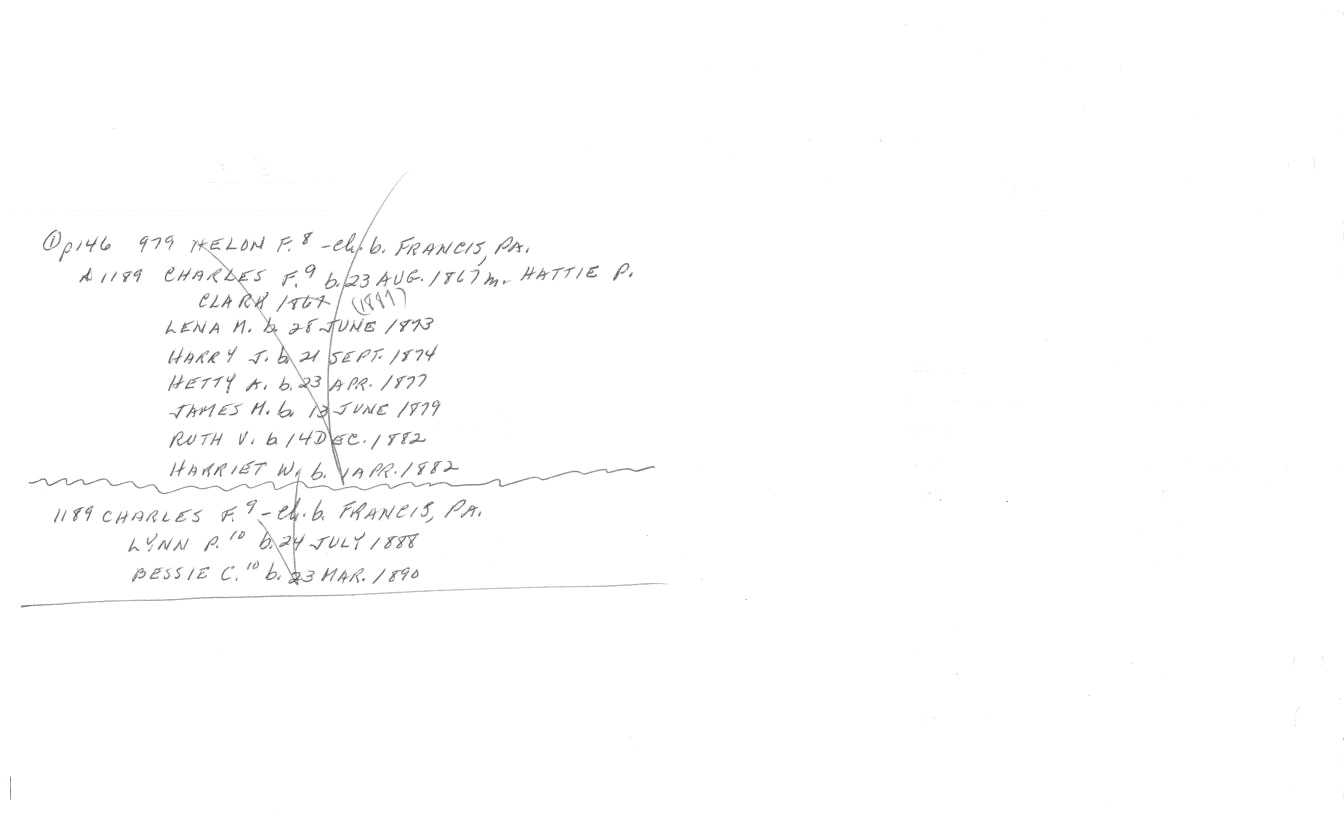 ① p146 979 HELON F.⁸ -ch. b. FRANCIS, PA.
1189 CHARLES F.⁹ b. 23 AUG. 1867 m. HATTIE P.
CLARK (1887)
LENA M. b. 28 JUNE 1873
HARRY J. b. 21 SEPT. 1874
HETTY A. b. 23 APR. 1877
JAMES M. b. 13 JUNE 1879
RUTH V. b 14 DEC. 1882
HARRIET W. b. 1 APR. 1882
1189 CHARLES F.⁹ - ch. b. FRANCIS, PA.
LYNN P.¹⁰ b. 24 JULY 1888
BESSIE C.¹⁰ b. 23 MAR. 1890